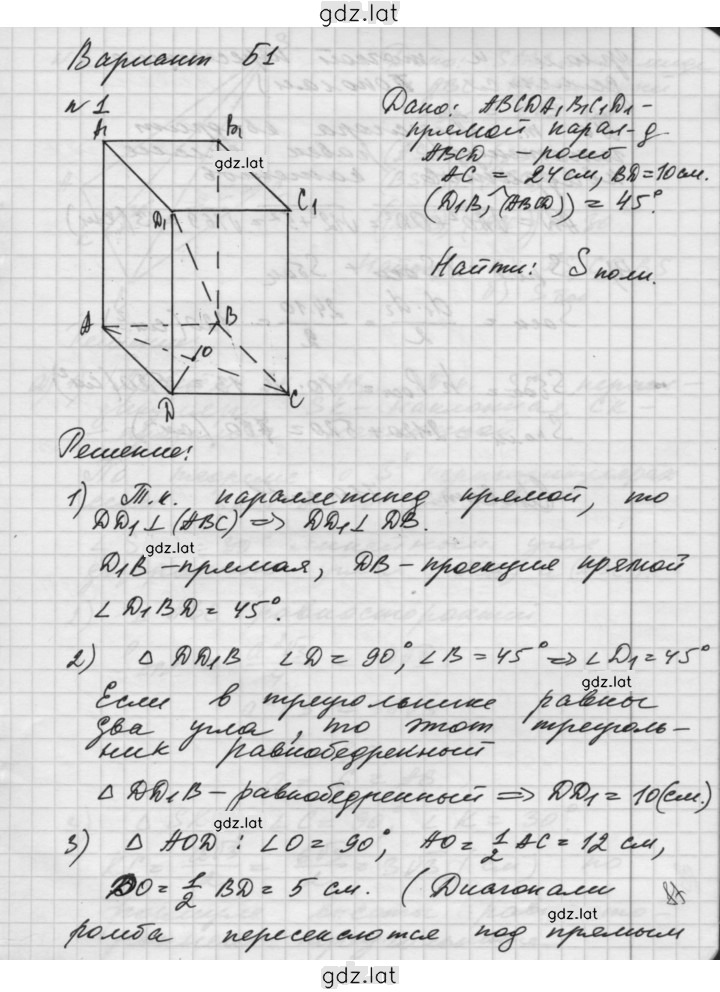 gdz.lat
Вариант Б1
№1
Дано: ABCDA1B1C1D1 -
прямой парал-д
ABCD - ромб
AC = 24 см, BD = 10 см.
(D1B, ^(ABCD)) = 45°.
Найти: Sполн.
A1
B1
gdz.lat
D1
C1
A
B
O
D
C
Решение:
1) Т.к. параллепипед прямой, то
DD1 ⊥ (ABC) => DD1 ⊥ DB.
gdz.lat
D1B - прямая, DB - проекция прямой
∠ D1BD = 45°.
2) △ DD1B ∠D = 90°, ∠B = 45° => ∠D1 = 45°
gdz.lat
Если в треугольнике равны
два угла, то этот треуголь-
ник равнобедренный
△ DD1B - равнобедренный => DD1 = 10 (см.)
gdz.lat
3) △ AOD : ∠O = 90°, AO = 1/2 AC = 12 см,
DO = 1/2 BD = 5 см. (Диагонали
ромба пересекаются под прямым
gdz.lat